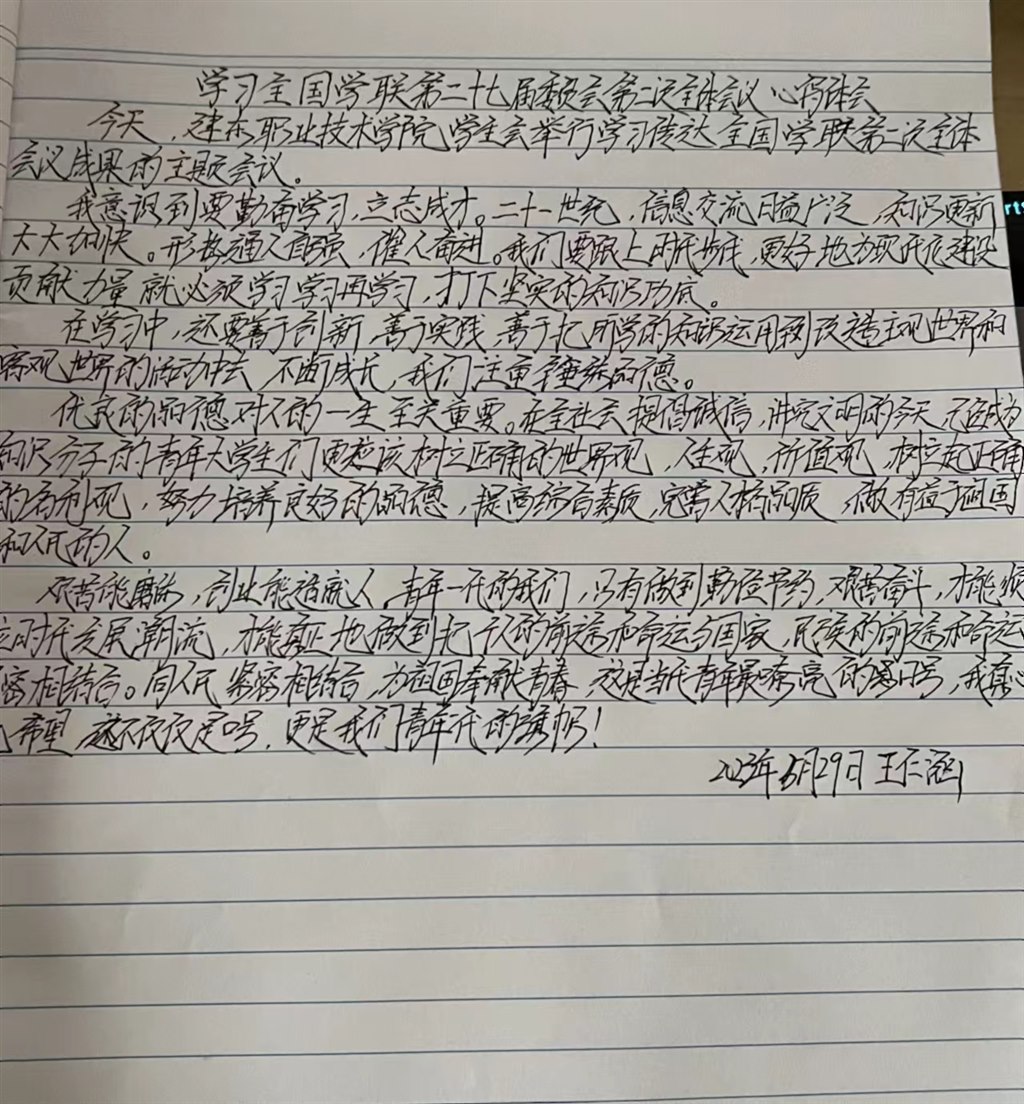 学习全国学联第二十七届委员会第二次全体会议心得体会
今天,建东职业技术学院学生会举行学习传达全国学联第二次全体
会议成果的主题会议。
我意识到要勤奋学习,立志成才。二十一世纪,信息交流日益广泛,知识更新
大大加快。形势逼人自强,催人奋进。我们要跟上时代步伐,更好地为现代化建设
贡献力量就必须学习学习再学习,打下坚实的知识功底。
在学习中,还要善于创新,善于实践,善于把所学的知识运用到改造主观世界和
客观世界的活动中去,不断成长,我们注重锤炼品德。
优良的品德对人的一生至关重要。在全社会提倡诚信,讲究文明的今天,成为
知识分子的青年大学生们更应该树立正确的世界观,人生观,价值观,树立起正确
的名利观,努力培养良好的品德,提高综合素质,完善人格品质,做有益于祖国
和人民的人。
艰苦能磨炼人,创业能造就人。青年一代的我们,只有做到勤俭节约,艰苦奋斗,才能顺
应时代发展潮流,才能真正地做到把个人的前途和命运与国家、民族的前途和命运
密相结合。同人民紧密相结合,为祖国奉献青春,这是当代青年最嘹亮的口号,我真心
希望这不仅仅是口号,更是我们青年一代的旗帜!
2023年6月29日 王仁涵